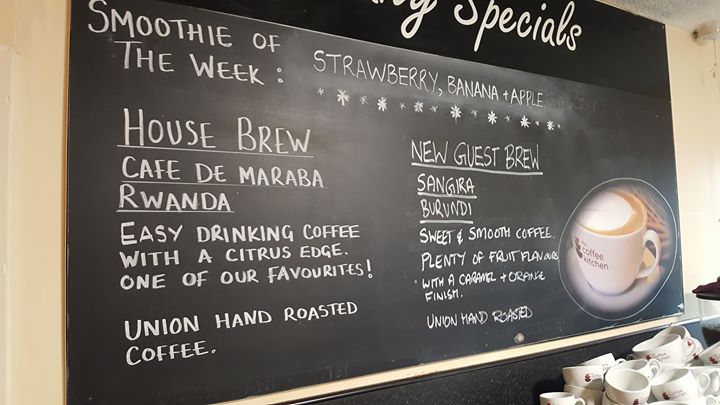 Specials
SMOOTHIE OF
THE WEEK :
STRAWBERRY, BANANA + APPLE
HOUSE BREW
CAFE DE MARABA
RWANDA
EASY DRINKING COFFEE
WITH A CITRUS EDGE.
ONE OF OUR FAVOURITES!
UNION HAND ROASTED
COFFEE.
NEW GUEST BREW
SANGIRA
BURUNDI
SWEET & SMOOTH COFFEE.
PLENTY OF FRUIT FLAVOURS
WITH A CARAMEL + ORANGE
FINISH.
UNION HAND ROASTED
the
coffee
kitchen